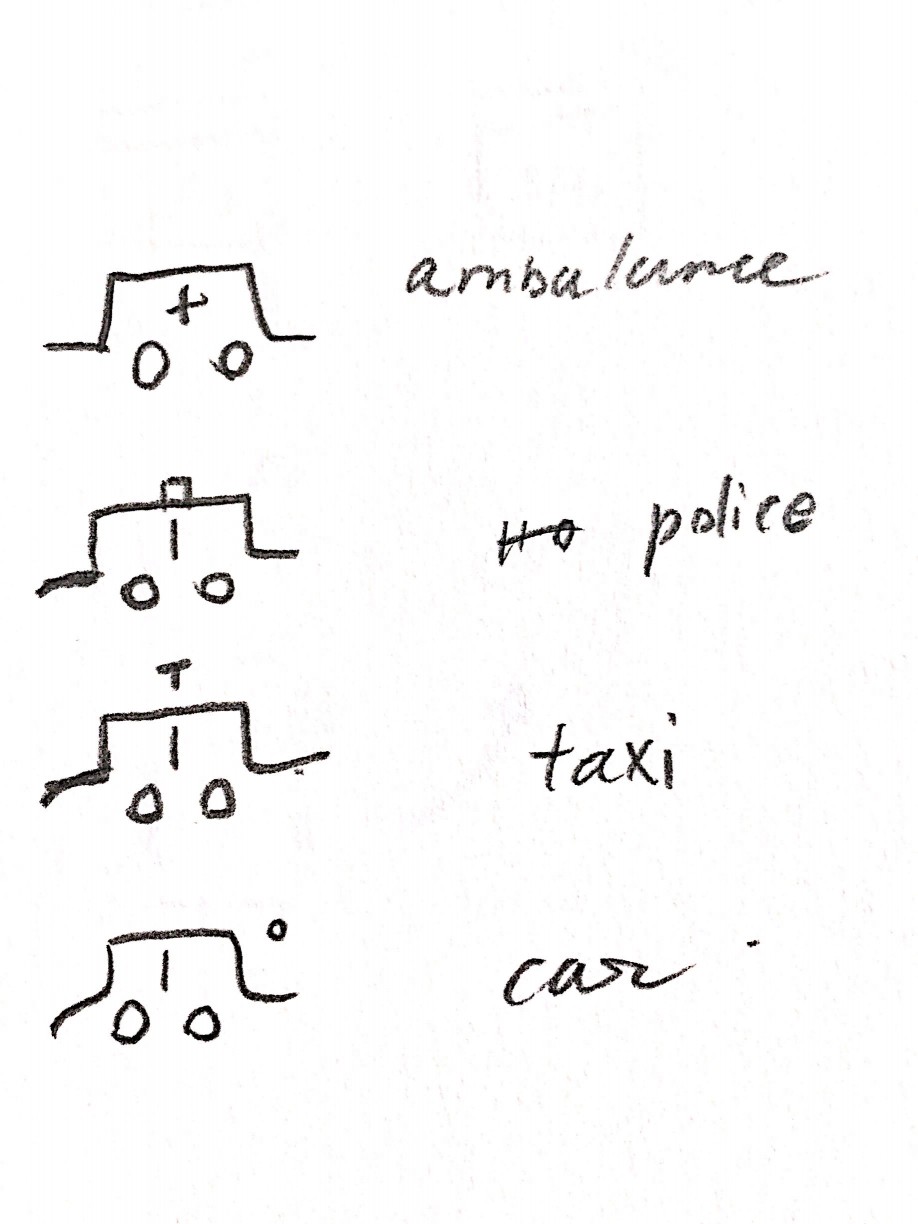 ambulance
police
T
taxi
car